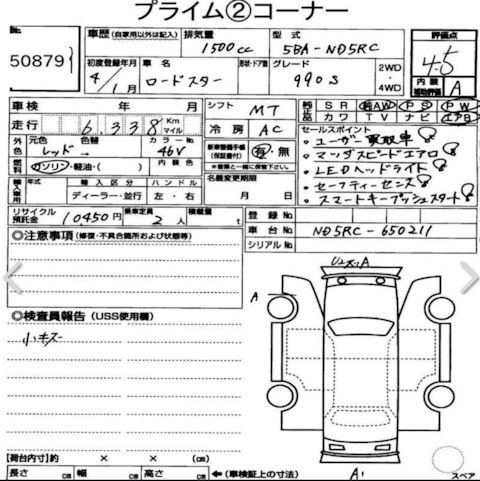 プライム②コーナー
No.
50879
車歴 (自家用以外は記入)
排気量
1500cc
型式
5BA-ND5RC
評価点
4.5
初度登録年月
4/1月
車名
ロードスター
形状・ドア数
グレード
990S
2WD
・
4WD
内装
補助評価
A
車検 年 月
シフト
MT
SR AW PS PW
カワ TV ナビ エアB
走行
6,338
Km
マイル
冷房
AC
セールスポイント
・ユーザー買取車
・マツダスピードエアロ
・LEDヘッドライト
・セーフティーセンス
・スマートキープッシュスタート
外色
元色 色替
レッド →
カラーNo
46V
新車整備手帳
(保証書付)
有・無
燃料
ガソリン・軽油・( )
内装色
名義変更期限
月 日
輸入車用
年式
輸入区分
ディーラー・並行
ハンドル
左・右
リサイクル
預託金
10450円
乗車定員
2人
積載量
t
登録No.
車台No.
ND5RC-650211
シリアルNo.
◎注意事項 (修復・不具合箇所および状態等)
A
◎検査員報告 (USS使用欄)
小キズ
A
A1
【荷台内寸】約 × × (cm)
長さ cm 幅 cm 高さ cm
←(車検証上の寸法)
スペア